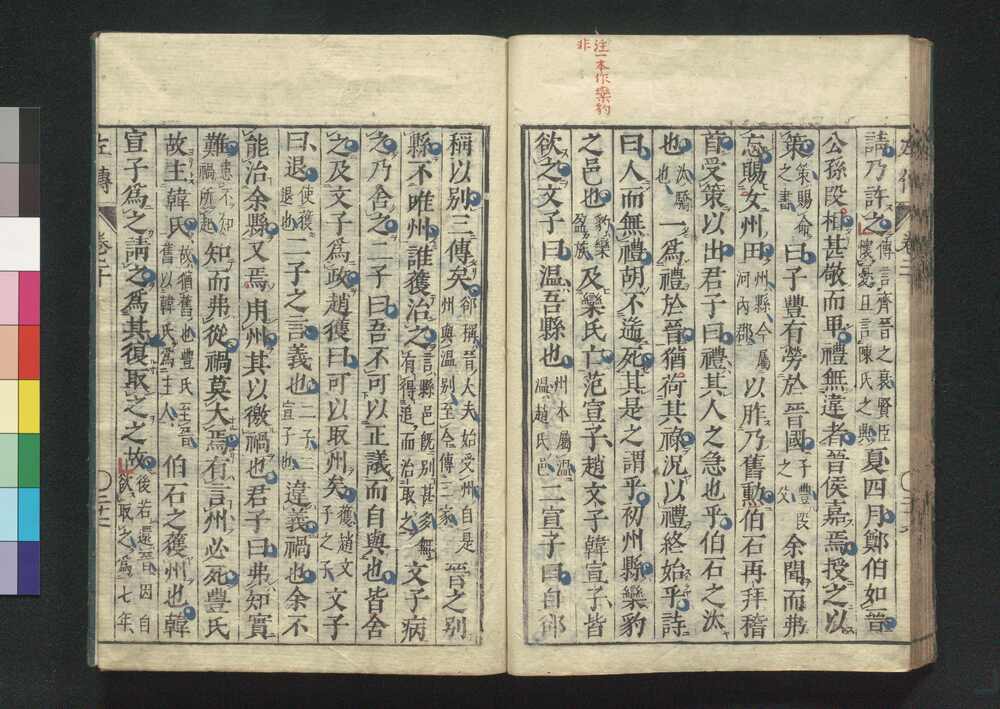 注一本作欒豹
非
請乃許之傳言齊晉之衰賢臣懷憂且言陳氏之興夏四月鄭伯如晉
公孫段相甚敬而卑禮無違者晉侯嘉焉授之以
策策賜命之書曰子豐有勞於晉國子豐段之父余聞而弗
忘賜女州田州縣今屬河內郡以胙乃舊勳伯石再拜稽
首受策以出君子曰禮其人之急也乎伯石之汰
也汰驕也一爲禮於晉猶荷其祿況以禮終始乎詩
曰人而無禮胡不遄死其是之謂乎初州縣欒豹
之邑也豹欒盈族及欒氏亡范宣子趙文子韓宣子皆
欲之文子曰温吾縣也州本屬温温趙氏邑二宣子曰自郤
稱以別三傳矣郤稱晉大夫始受州自是州與温別至今傳三家晉之別
縣不唯州誰獲治之言縣邑旣別甚多無有得追而治取之文子病
之乃舍之二子曰吾不可以正議而自與也皆舍
之及文子爲政趙獲曰可以取州矣獲趙文子之子文子
曰退使獲退也二子之言義也二子二宣子也違義禍也余不
能治余縣又焉用州其以徼禍也君子曰弗知實
難患不知禍所起知而弗從禍莫大焉有言州必死豐氏
故主韓氏故猶舊也豐氏至晉舊以韓氏爲主人伯石之獲州也韓
宣子爲之請之爲其復取之之故後若還晉因自欲取之爲七年
左傳